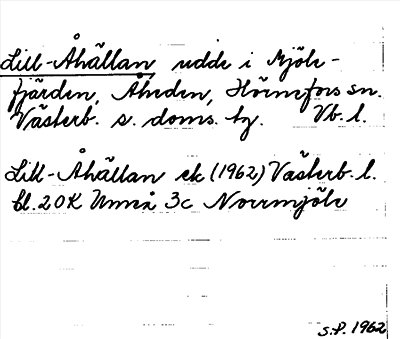 Lill-Åhällan udde i Mjöle-
fjärden, Åheden, Hörnefors sn.
Västerb. s. doms. tg. Vb. l.
Lill-Åhällan ek (1962) Västerb. l.
bl. 20K Umeå 3c Norrmjöle
S.P. 1962